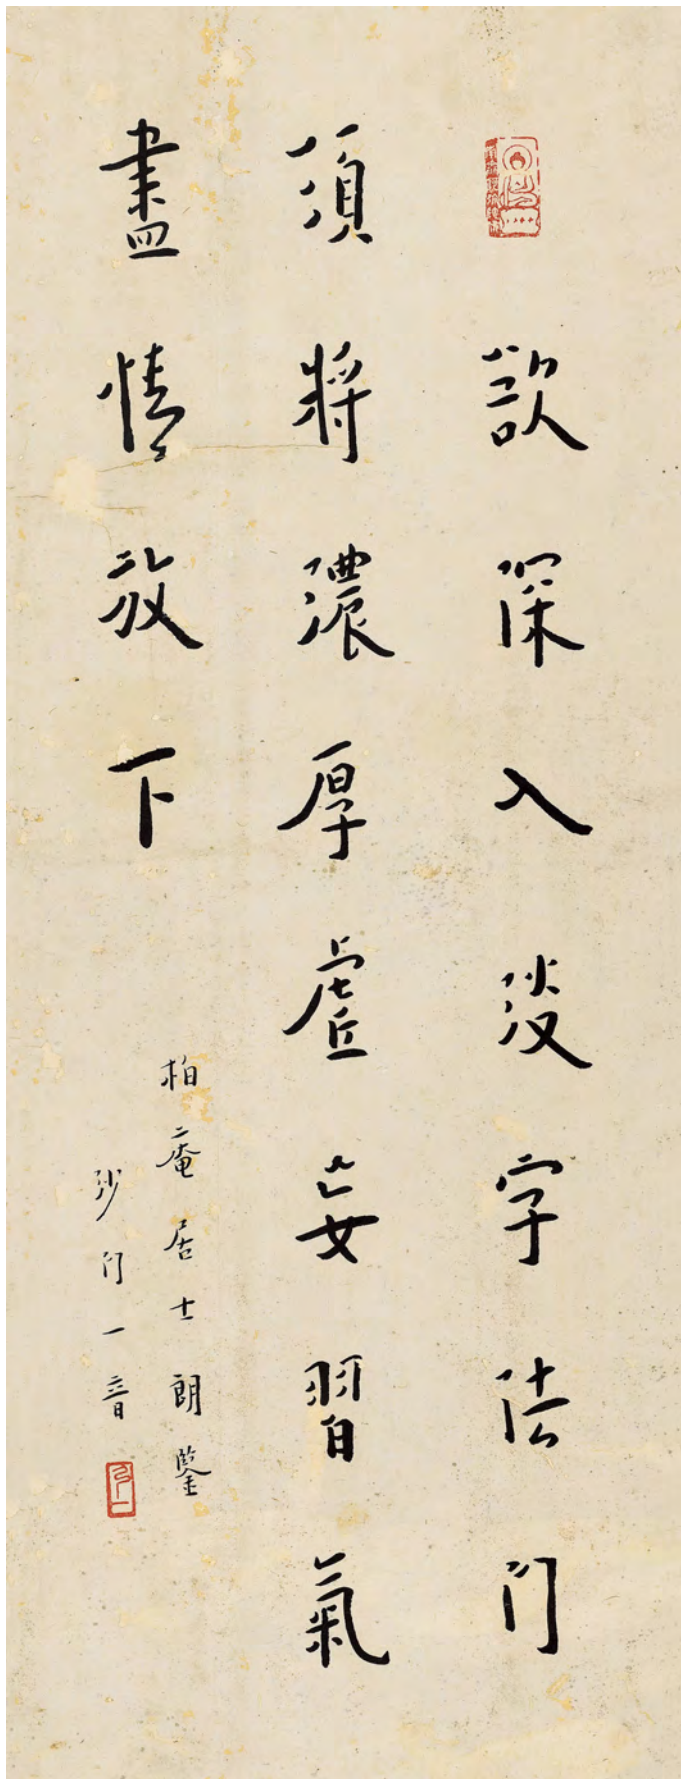 欲深入淡字法门
須將濃厚虛妄習氣
盡情放下
柏庵居士朗鑒
沙门一音